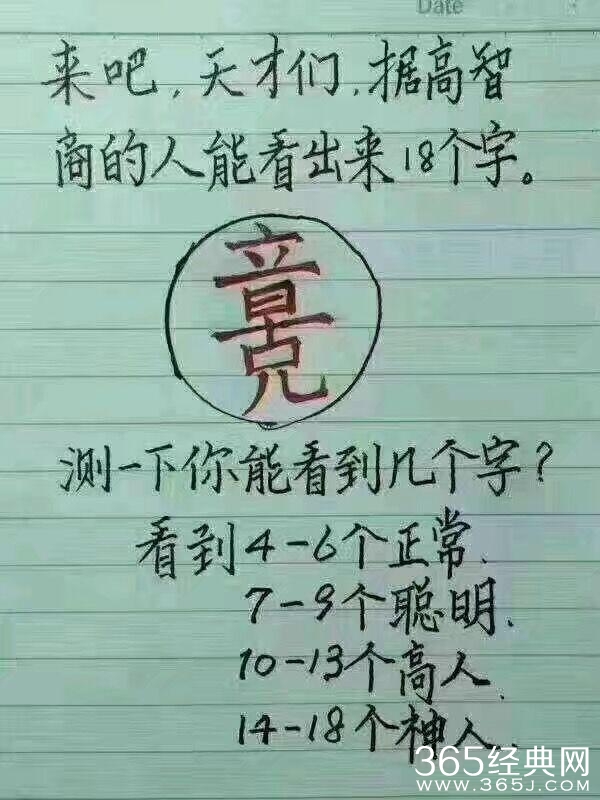 Date
来吧,天才们,据高智
商的人能看出来18个字。
测一下你能看到几个字?
看到4-6个正常.
7-9个聪明.
10-13个高人.
14-18个神人.
365经典网
WWW.365J.COM